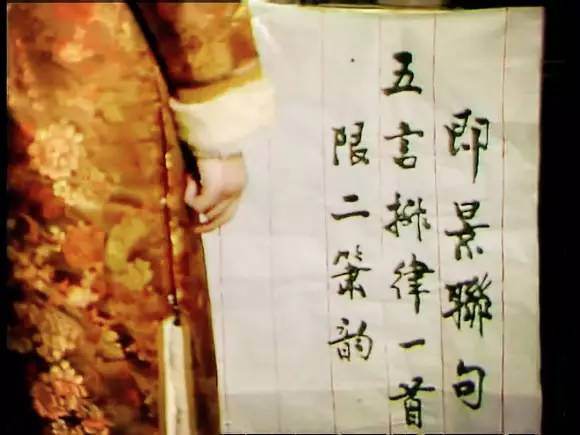 即景聯句
五言排律一首
限二箫韵